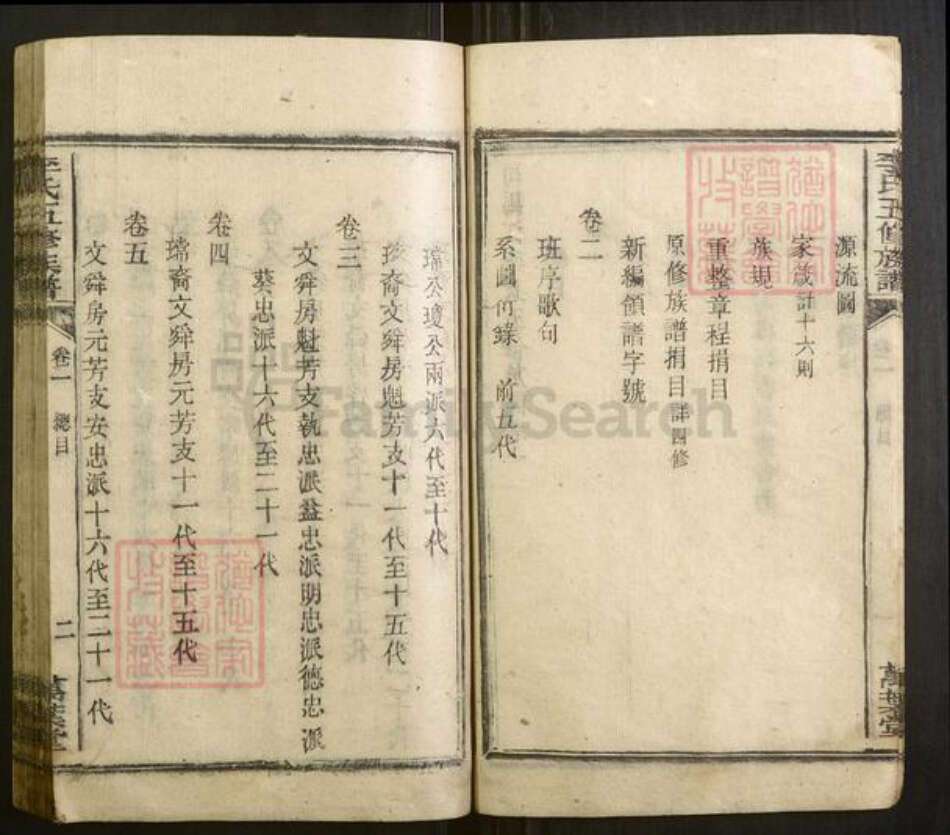 李氏五修族譜
源流圖
家箴計十六則
族規
重整章程捐目
原修族譜捐目詳四修
新編領譜字號
卷二
班序歌句
系圖何錄 前五代
萬葉堂
瑞公瓊公兩派六代至十代
珍裔文舜房魁芳支十一代至十五代
卷三
文舜房魁芳支執忠派益忠派明忠派德忠派
葵忠派十六代至二十一代
卷四
瑞裔文舜房元芳支十一代至十五代
卷五
文舜房元芳支安忠派十六代至二十一代
李氏五修族譜
卷一 總目
二
萬葉堂
FamilySearch